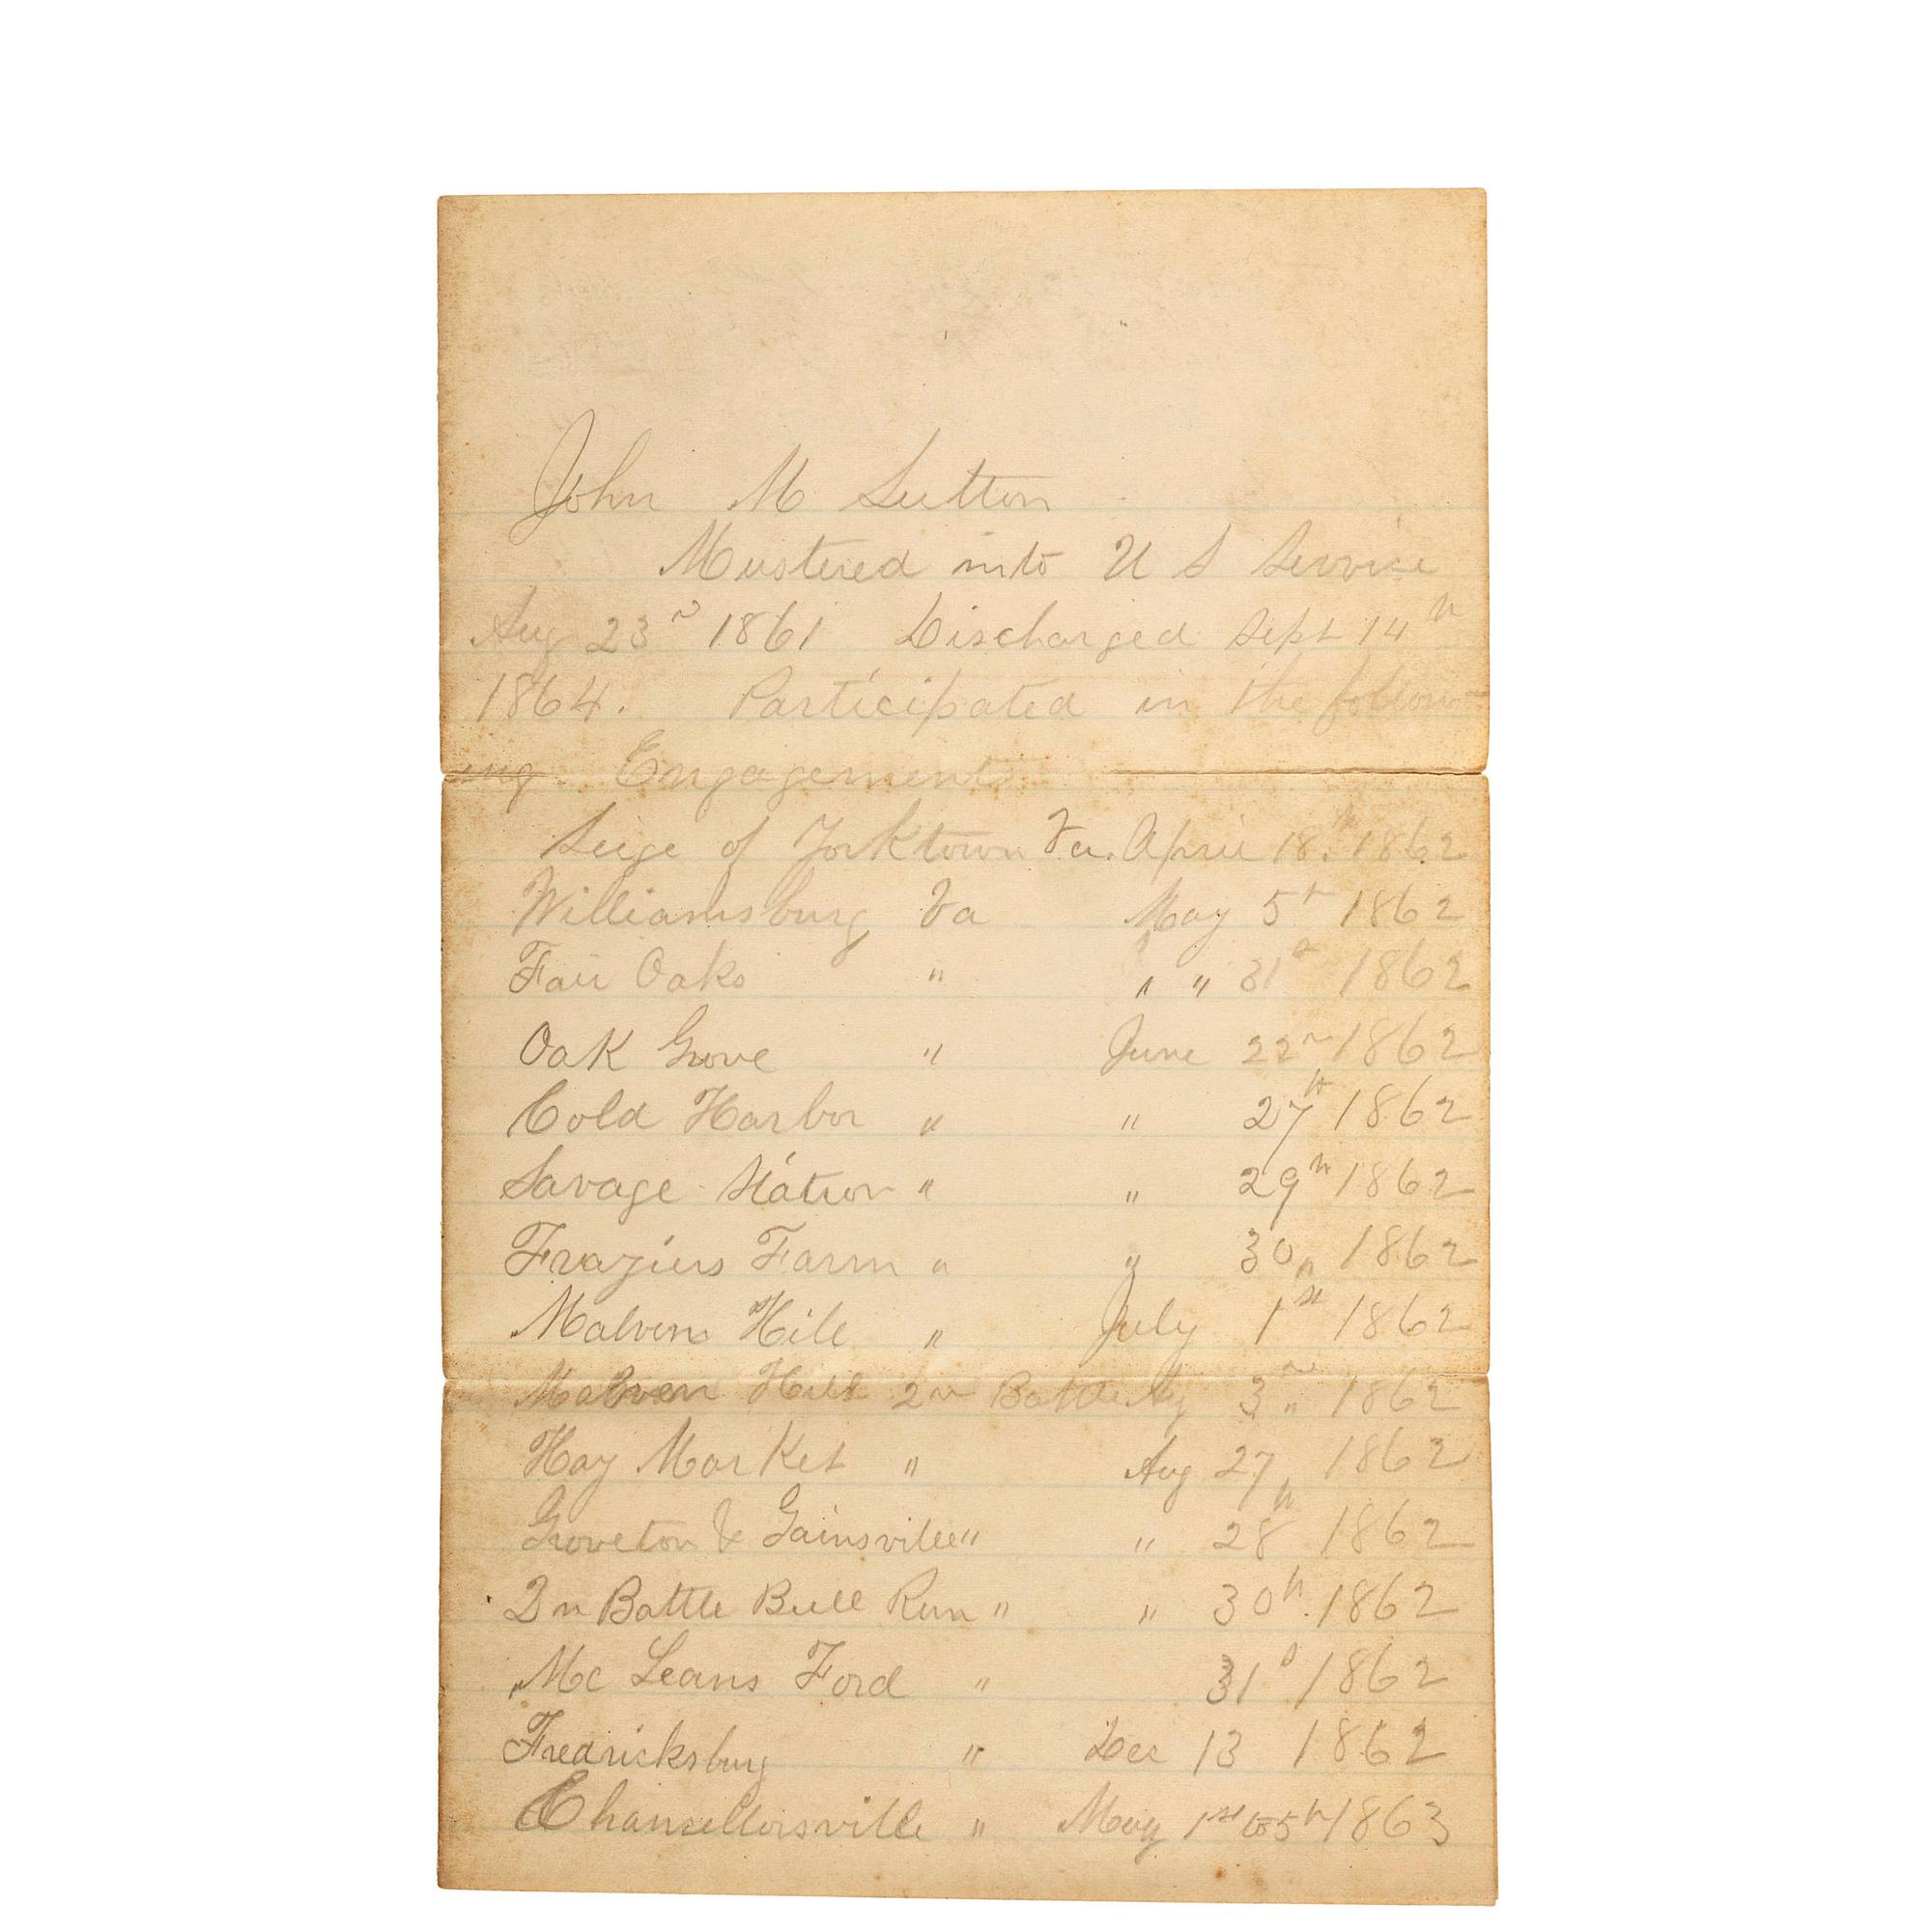 John M Sutton
Mustered into U S Service
Aug 23" 1861 Discharged Sept 14th
1864. Participated in the follow-
ing. Engagements
Seige of Yorktown Va. April 18th 1862
Williamsburg Va May 5th 1862
Fair Oaks " " " 31st 1862
Oak Grove " June 22" 1862
Cold Harbor " " 27th 1862
Savage Station " " 29th 1862
Fraziers Farm " " 30" 1862
Malvern Hill " July 1st 1862
Malvern Hill 2n Battle Ag 3" 1862
Hay Market " Aug 27" 1862
Groveton & Gainsville " " 28th 1862
2n Battle Bull Run " " 30th 1862
Mc Leans Ford " 31s 1862
Fredricksburg " Dec 13 1862
Chancellorsville " May 1st to 5th 1863